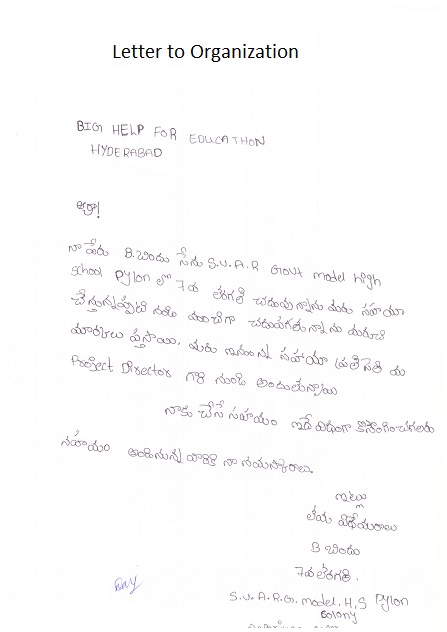 Letter to Organization
BIG HELP FOR EDUCATHON
HYDERABAD
ఆర్యా!
నా పేరు B.బిందు నేను S.V.A.R Govt model High
School Pylon లో 7వ తరగతి చదువున్నాను మీరు సహాయం
చేస్తున్నప్పటి నుండి మంచిగా చదువగలుగుతున్నాను మంచి
మార్కులు వస్తాయి. మీరు సహాయం ప్రతి
Project Director గారి నుండి అందుతున్నాయి
నాకు చేసే సహాయం ఇదే విధంగా కొనసాగించగలరు
సహాయం అందిస్తున్న వారికి నా నమస్కారాలు.
ఇట్లు
తమ విధేయురాలు
B బిందు
7వ తరగతి.
S.V.A.R.G. model. H.S Pylon
Colony